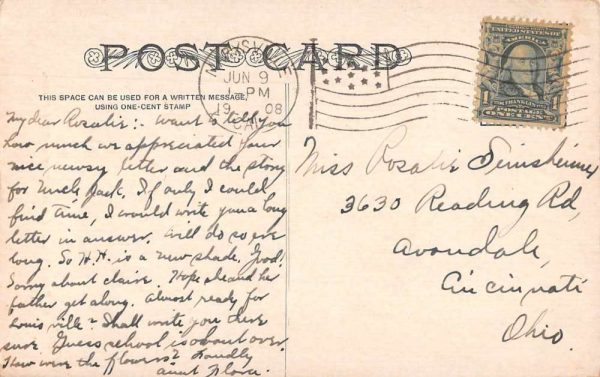 POST CARD
MARYSVILLE
JUN 9
1-PM
1908
CAL.
UNITED STATES OF AMERICA
FRANKLIN
POSTAGE
1 ONE CENT 1
THIS SPACE CAN BE USED FOR A WRITTEN MESSAGE,
USING ONE-CENT STAMP
My dear Rosalie:- Want to tell you
how much we appreciated your
nice newsy letter and the story
for Uncle Jack. If only I could
find time, I would write you a long
letter in answer. Will do so ere
long. So H.H. is a new shade. Good!
Sorry about Claire. Hope she and her
father get along. Almost ready for
Louisville? Shall write you there
sure. Guess school is about over.
How were the flowers? Fondly
Aunt Flora.
Miss Rosalie Seinsheimer
3630 Reading Rd,
Avondale,
Cincinnati
Ohio.